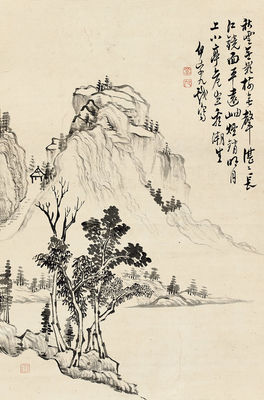 秋雲無影樹無聲湛湛長
江鏡面平遠岫煙銷明月
上小亭危坐看潮生